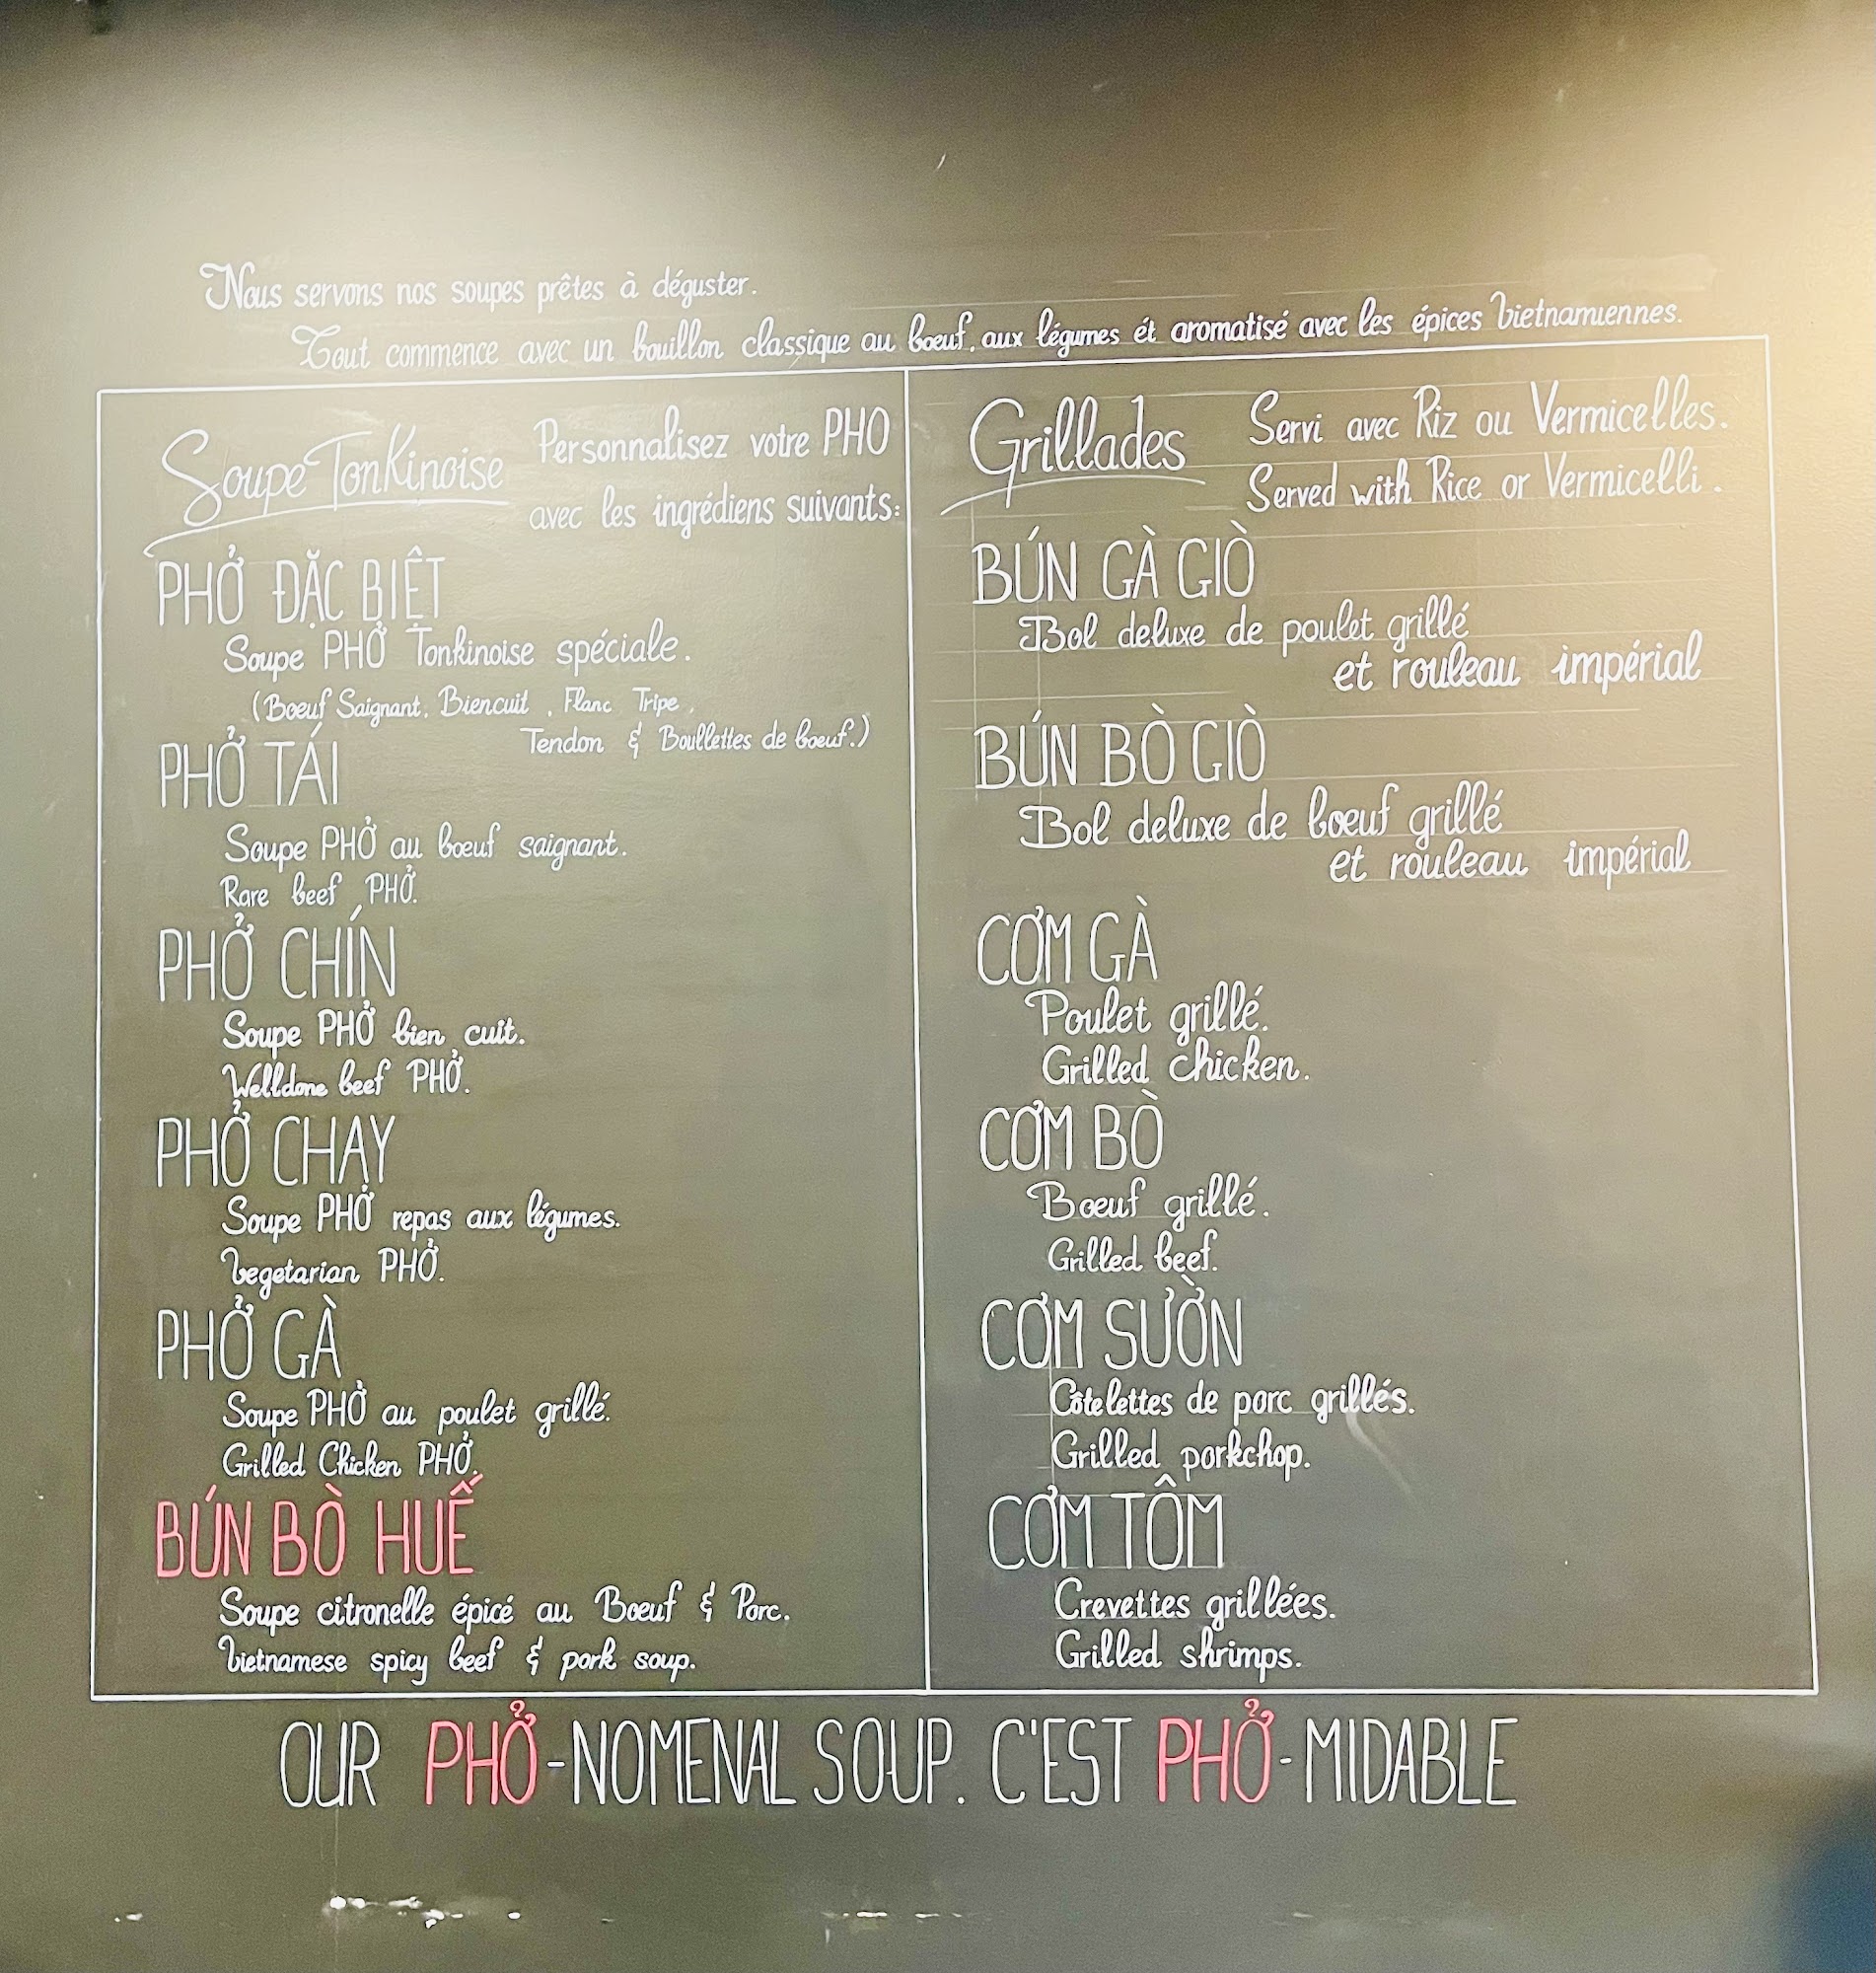 Nous servons nos soupes prêtes à déguster.
Tout commence avec un bouillon classique au bœuf, aux légumes ét aromatisé avec les épices Vietnamiennes.
Soupe Tonkinoise
Personnalisez votre PHO
avec les ingrédiens suivants:
PHỞ ĐẶC BIỆT
Soupe PHỞ Tonkinoise spéciale.
(Bœuf Saignant, Biencuit, Flanc Tripe,
Tendon & Boullettes de bœuf.)
PHỞ TÁI
Soupe PHỞ au bœuf saignant.
Rare beef PHỞ.
PHỞ CHÍN
Soupe PHỞ bien cuit.
Welldone beef PHỞ.
PHỞ CHAY
Soupe PHỞ repas aux légumes.
Vegetarian PHỞ.
PHỞ GÀ
Soupe PHỞ au poulet grillé.
Grilled Chicken PHỞ.
BÚN BÒ HUẾ
Soupe citronelle épicé au Bœuf & Porc.
Vietnamese spicy beef & pork soup.
Grillades
Servi avec Riz ou Vermicelles.
Served with Rice or Vermicelli.
BÚN GÀ GIÒ
Bol deluxe de poulet grillé
et rouleau impérial
BÚN BÒ GIÒ
Bol deluxe de bœuf grillé
et rouleau impérial
CƠM GÀ
Poulet grillé.
Grilled chicken.
CƠM BÒ
Bœuf grillé.
Grilled beef.
CƠM SƯỜN
Côtelettes de porc grillés.
Grilled porkchop.
CƠM TÔM
Crevettes grillées.
Grilled shrimps.
OUR PHỞ-NOMENAL SOUP. C'EST PHỞ-MIDABLE